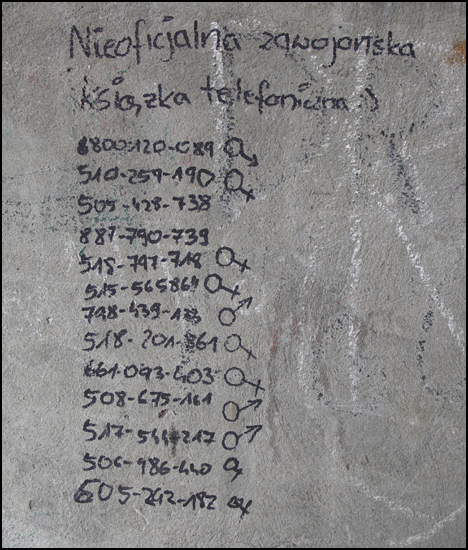 Nieoficjalna zawojońska
książka telefoniczna :)
6800-120-089
510-259-190
505-428-738
887-790-739
518-797-718
515-565869
798-439-183
518-201-861
661-093-403
508-675-161
517-544-217
506-986-440
605-262-182